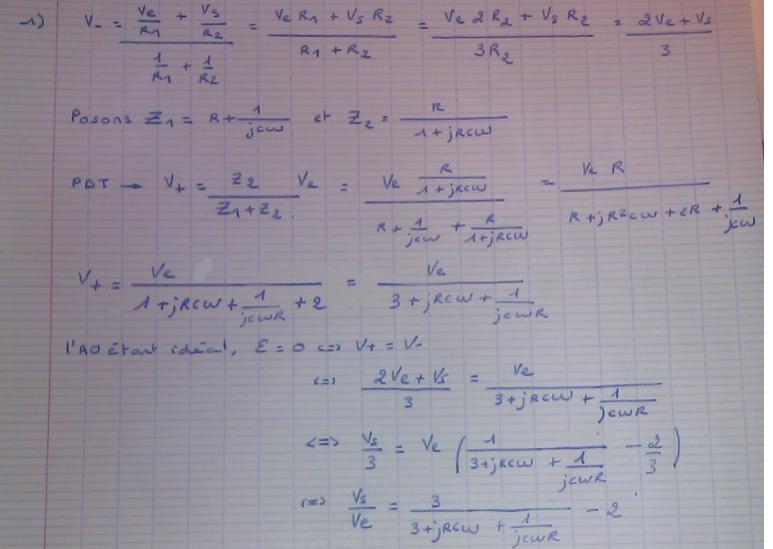 1) V₋ = (Ve/R1 + Vs/R2) / (1/R1 + 1/R2) = (Ve R1 + Vs R2) / (R1 + R2) = (Ve 2R2 + Vs R2) / 3R2 = (2Ve + Vs) / 3
Posons Z1 = R + 1/jcω et Z2 = R / (1 + jRcω)
PDT → V+ = Z2 / (Z1 + Z2) Ve = (Ve R/(1 + jRcω)) / (R + 1/jcω + R/(1+jRcω)) = Ve R / (R + jR²cω + 2R + 1/jcω)
V+ = Ve / (1 + jRcω + 1/jcωR + 2) = Ve / (3 + jRcω + 1/jcωR)
l'AO étant idéal, Ɛ = 0 <=> V+ = V-
<=> (2Ve + Vs) / 3 = Ve / (3 + jRcω + 1/jcωR)
<=> Vs/3 = Ve (1 / (3 + jRcω + 1/jcωR) - 2/3)
<=> Vs/Ve = 3 / (3 + jRcω + 1/jcωR) - 2